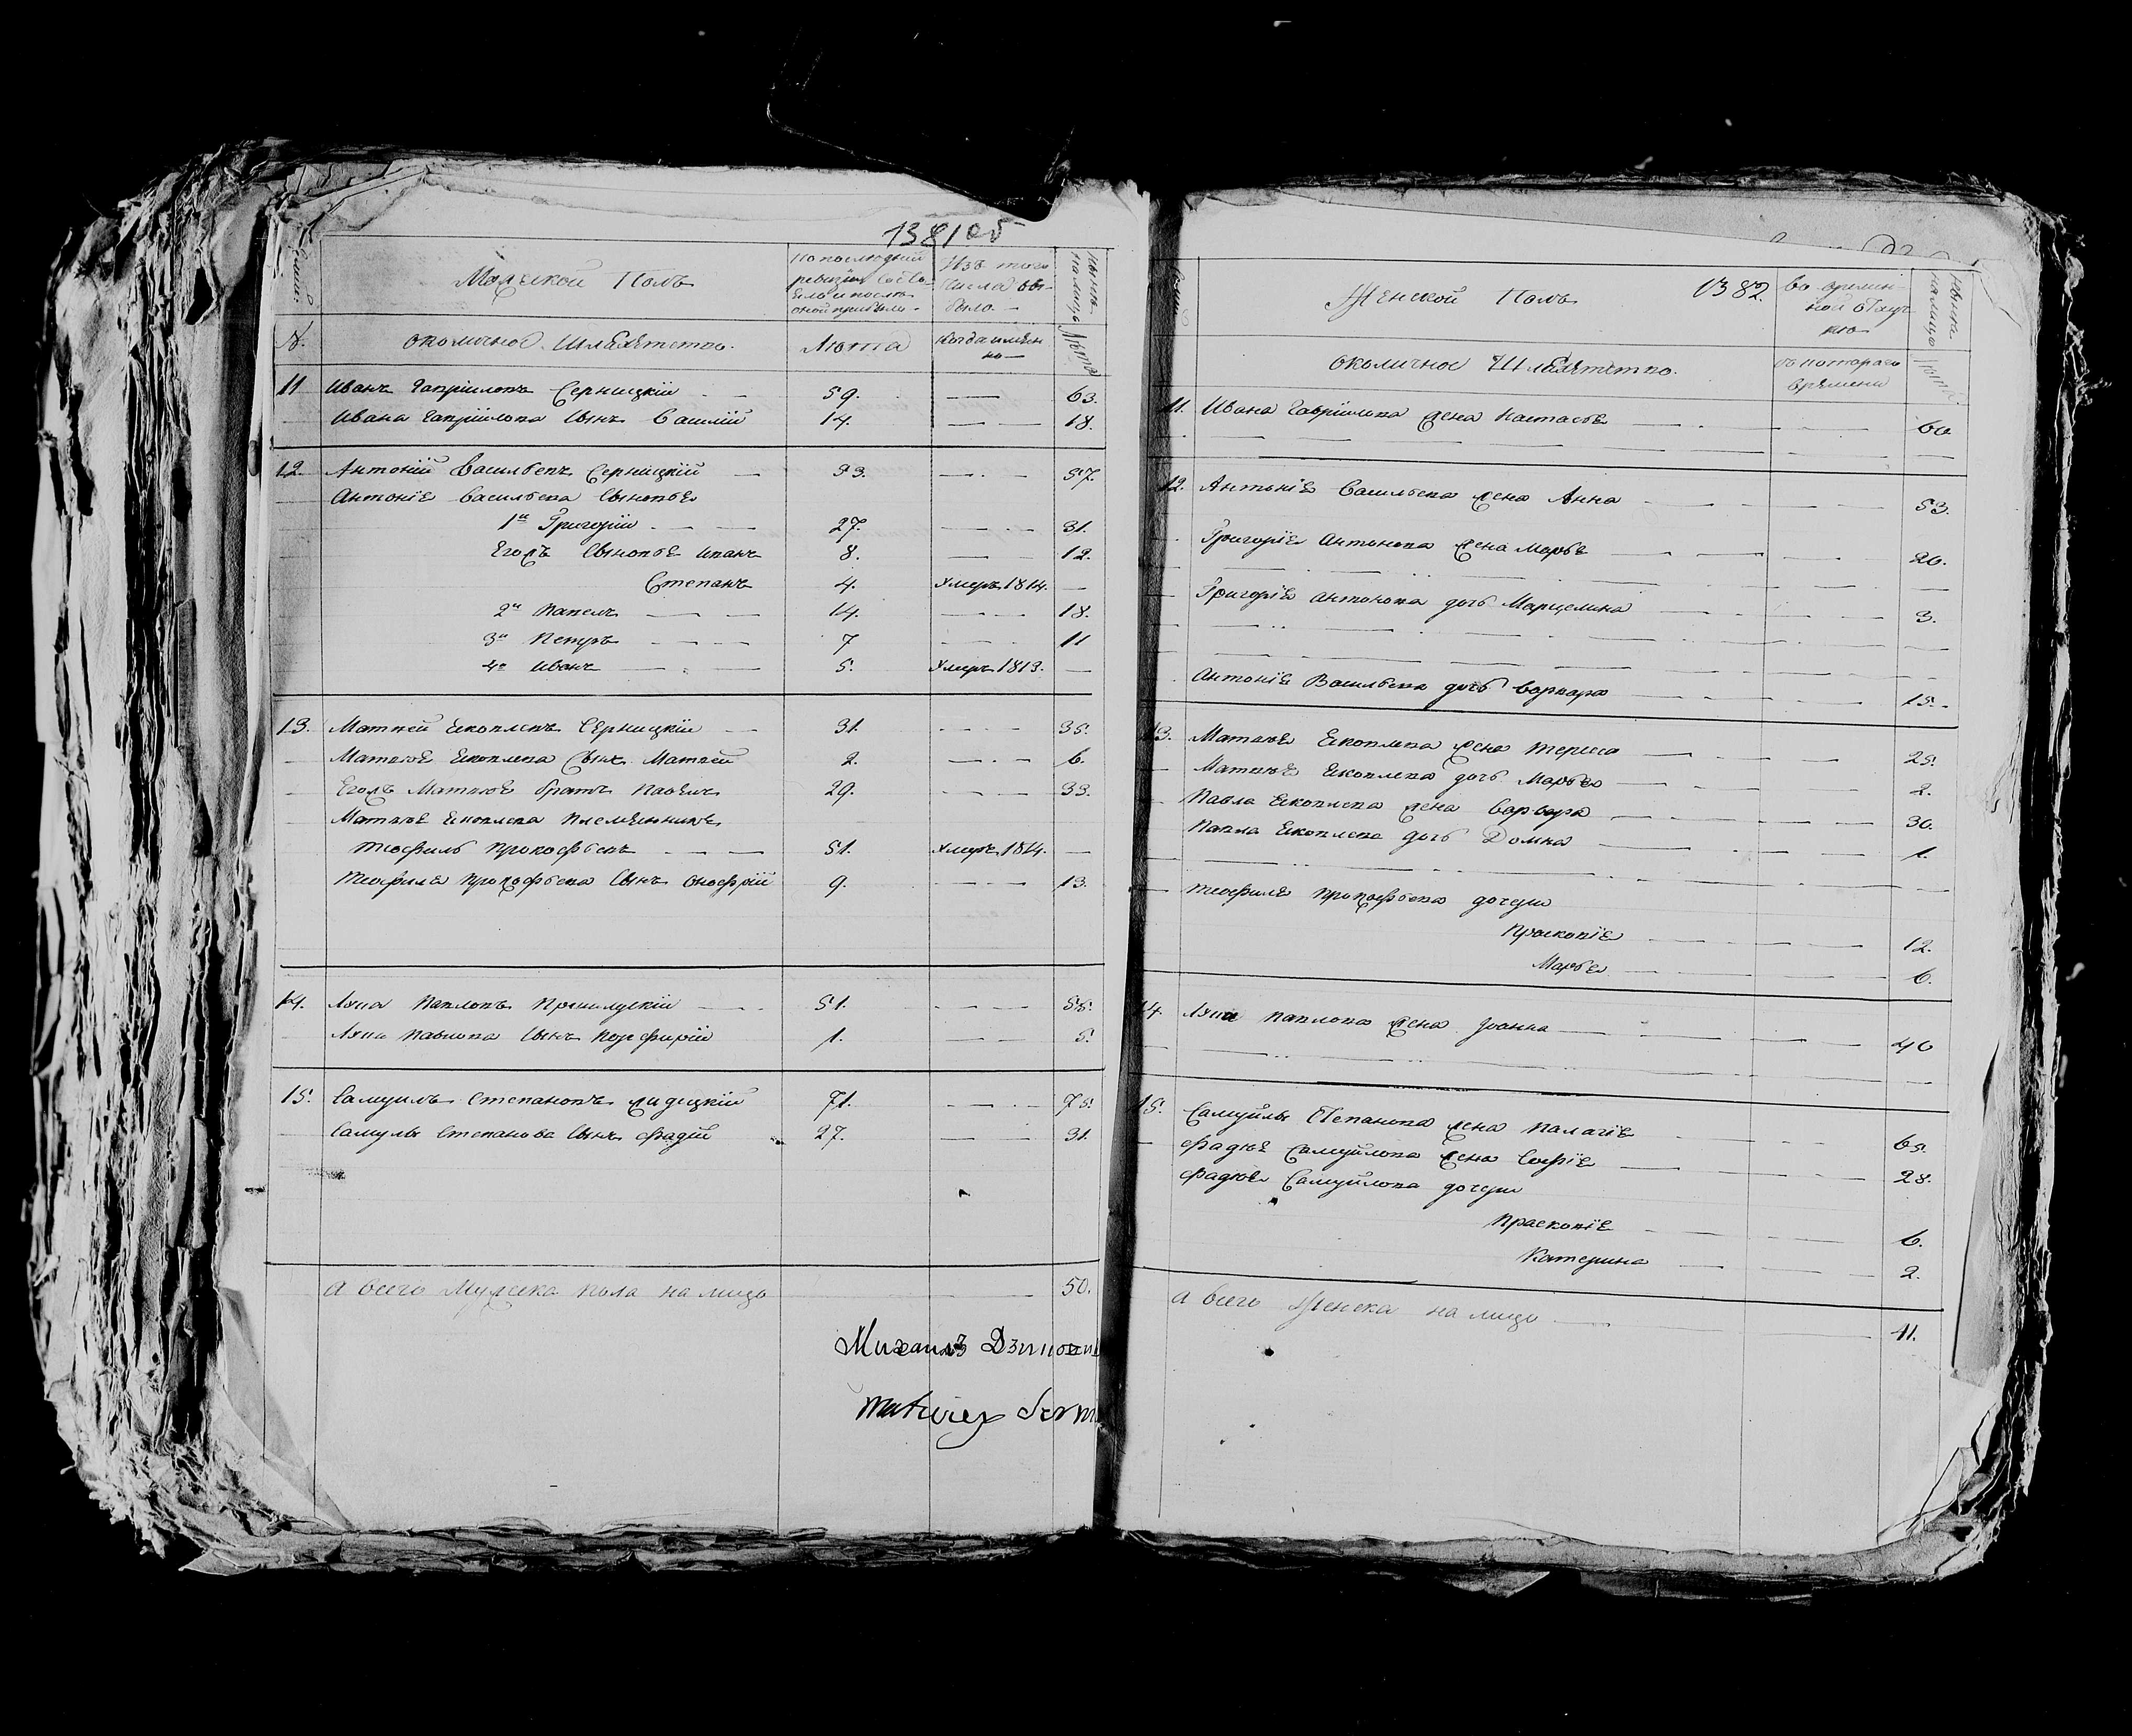 1381 об
Мужской Полъ
По последней ревизiи состояло и после оной прибыло
Изъ того числа выбыло
Ныне на лицо
№
околичное Шляхетство.
Лета
Когда именно
Лета
11 Иванъ Гаврiиловъ Серницкiй 59. 63.
Ивана Гаврiилова сынъ Василiй 14. 18.
12. Антонiй Васильевъ Серницкiй 53. 57.
Антонiя Васильева сыновья
1й Григорiй 27. 31.
Егожъ сыновья Иванъ 8. 12.
Степанъ 4. умеръ 1814.
2й Павелъ 14. 18.
3й Петръ 7 11
4й Иванъ 5. умеръ 1813.
13. Матвей Яковлевъ Серницкiй 31. 35.
Матвея Яковлева сынъ Матвей 2. 6.
Егожъ Матвея братъ Павелъ 29. 33.
Матвея Яковлева племянникъ
Теофилъ Прокофьевъ 51. умеръ 1814.
Теофиля Прокофьева сынъ Онофрiй 9. 13.
14. Лука Павловъ 51. 55.
Луки Павлова сынъ Порфирiй 1. 5.
15. Самуилъ Степановъ 71. 75.
Самуилы Степанова сынъ Фадей 27. 31.
А всего Мужеска пола на лицо 50.
Михаилъ
Matwiey
Женской Полъ
1382.
Во временной отлучке
Ныне на лицо
околичное Шляхетство.
съ котораго времени
Лета
11. Ивана Гаврiилова жена Настасья 60
12. Антонiя Васильева жена Анна 53.
Григорiя Антонова жена Марья 26.
Григорiя Антонова дочь Марцелина 3.
Антонiя Васильева дочь Варвара 15.
13. Матвея Яковлева жена Тереса 25.
Матвея Яковлева дочь Марья 2.
Павла Яковлева жена Варвара 30.
Павла Яковлева дочь Домна 1.
Теофиля Прокофьева дочери
Прасковiя 12.
Марья 6.
14. Луки Павлова жена Iоанна 40
15. Самуйлы Степанова жена Палагiя 65.
Фадея Самуйлова жена Софiя 28.
Фадея Самуйлова дочери
Прасковiя 6.
Катерина 2.
А всего Женска на лицо 41.